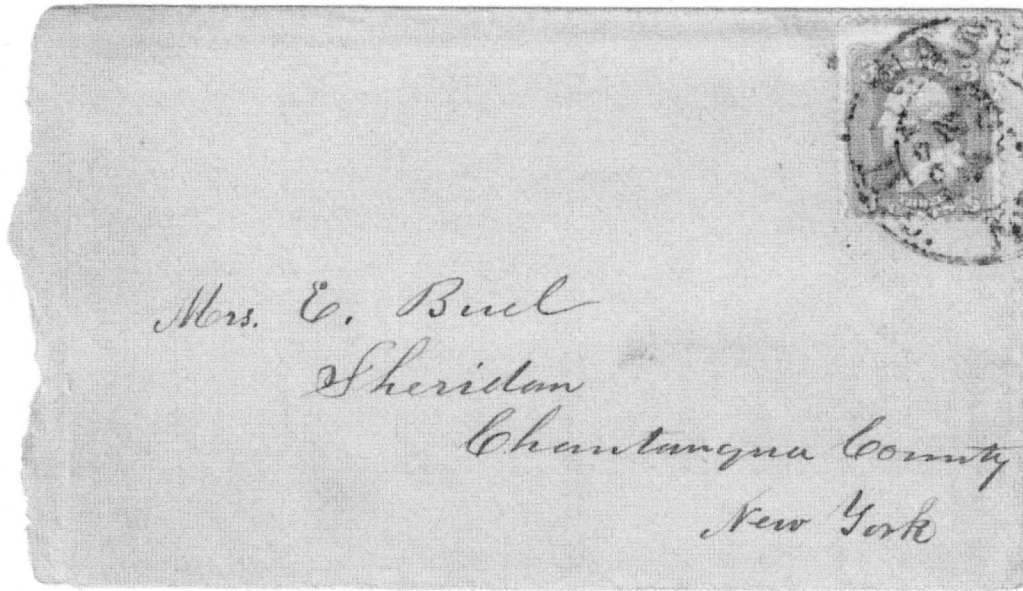 Mrs. E. Buel
Sheridan
Chautauqua County
New York